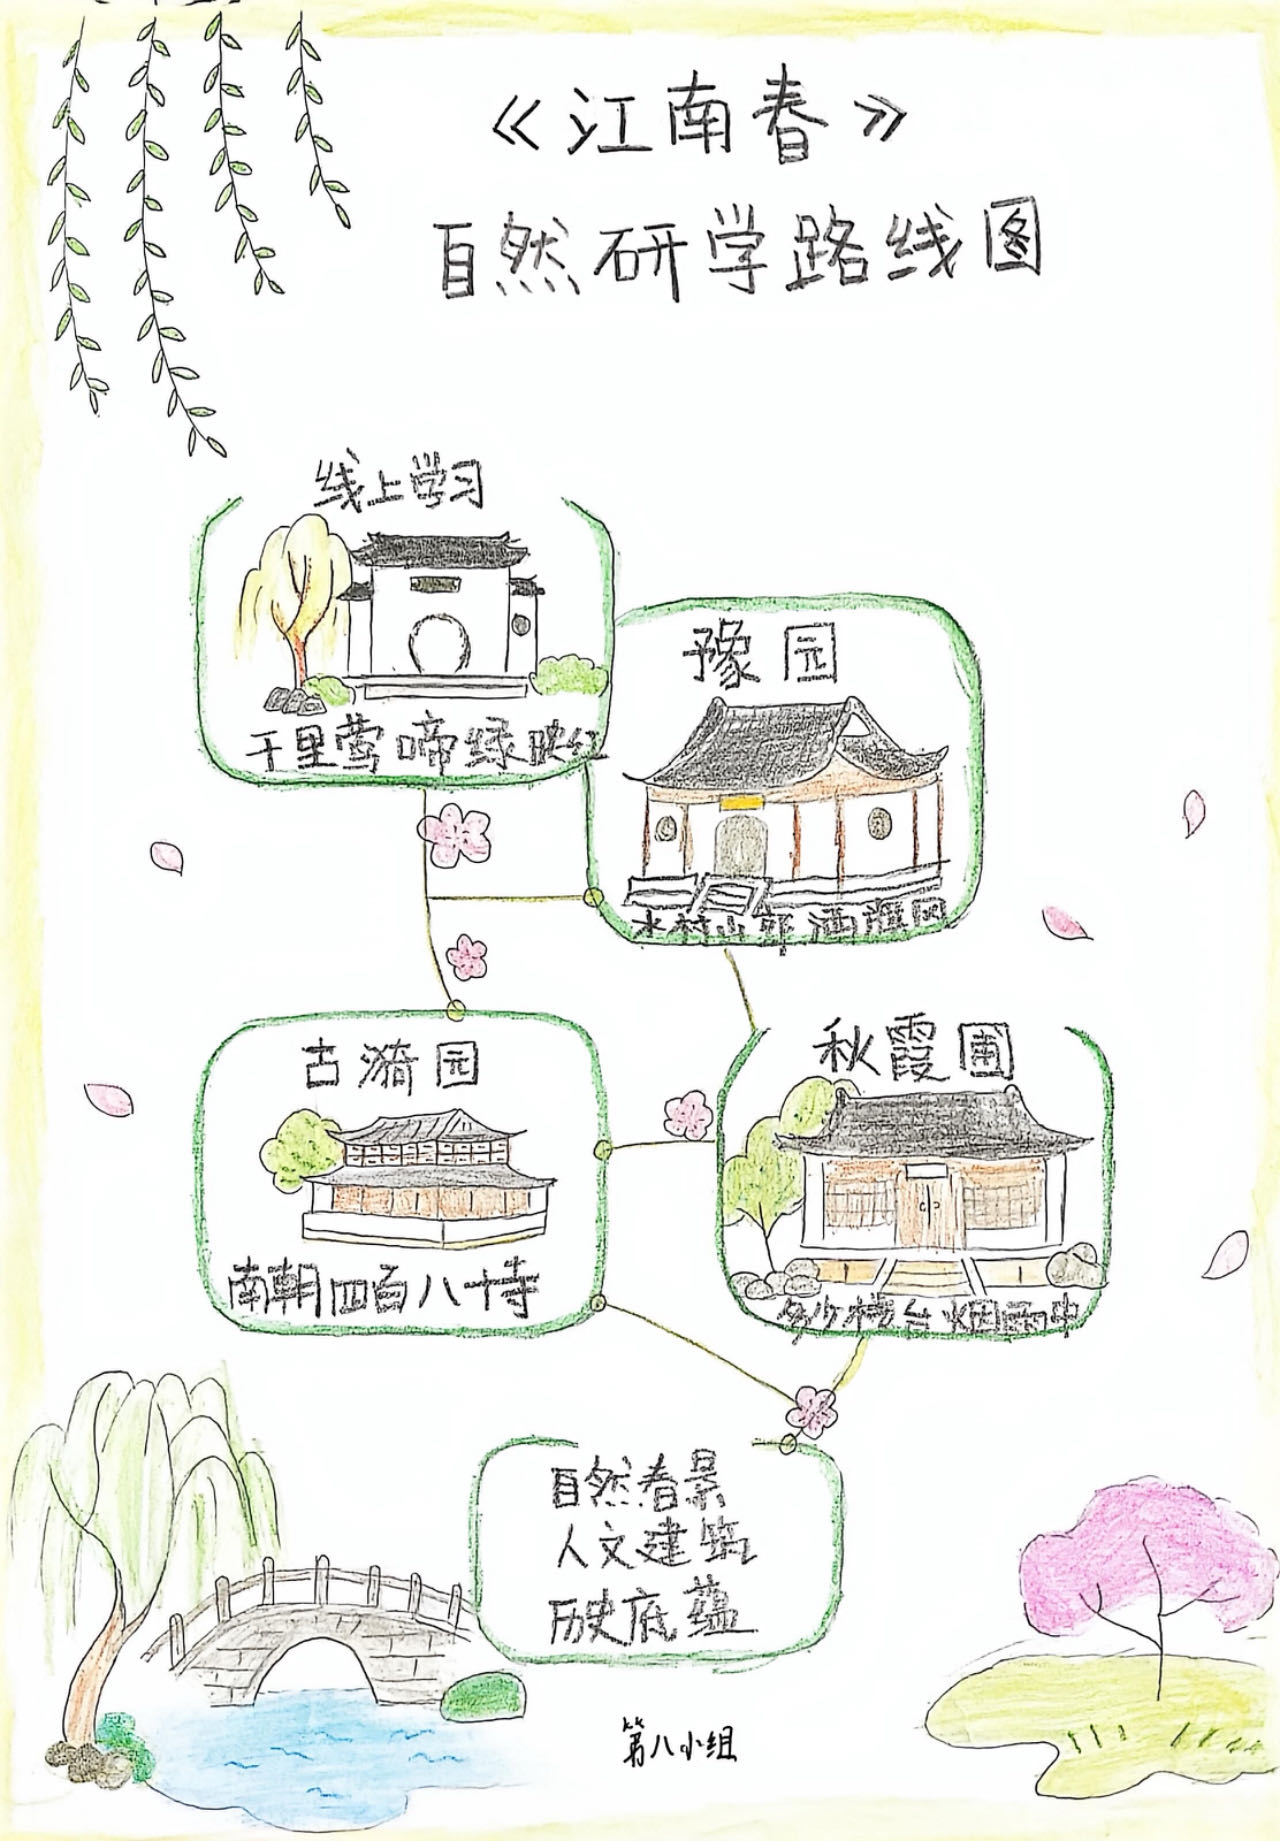 《江南春》
自然研学路线图
线上学习
千里莺啼绿映红
豫园
水村山郭酒旗风
古漪园
南朝四百八十寺
秋霞圃
多少楼台烟雨中
自然春景
人文建筑
历史底蕴
第八小组